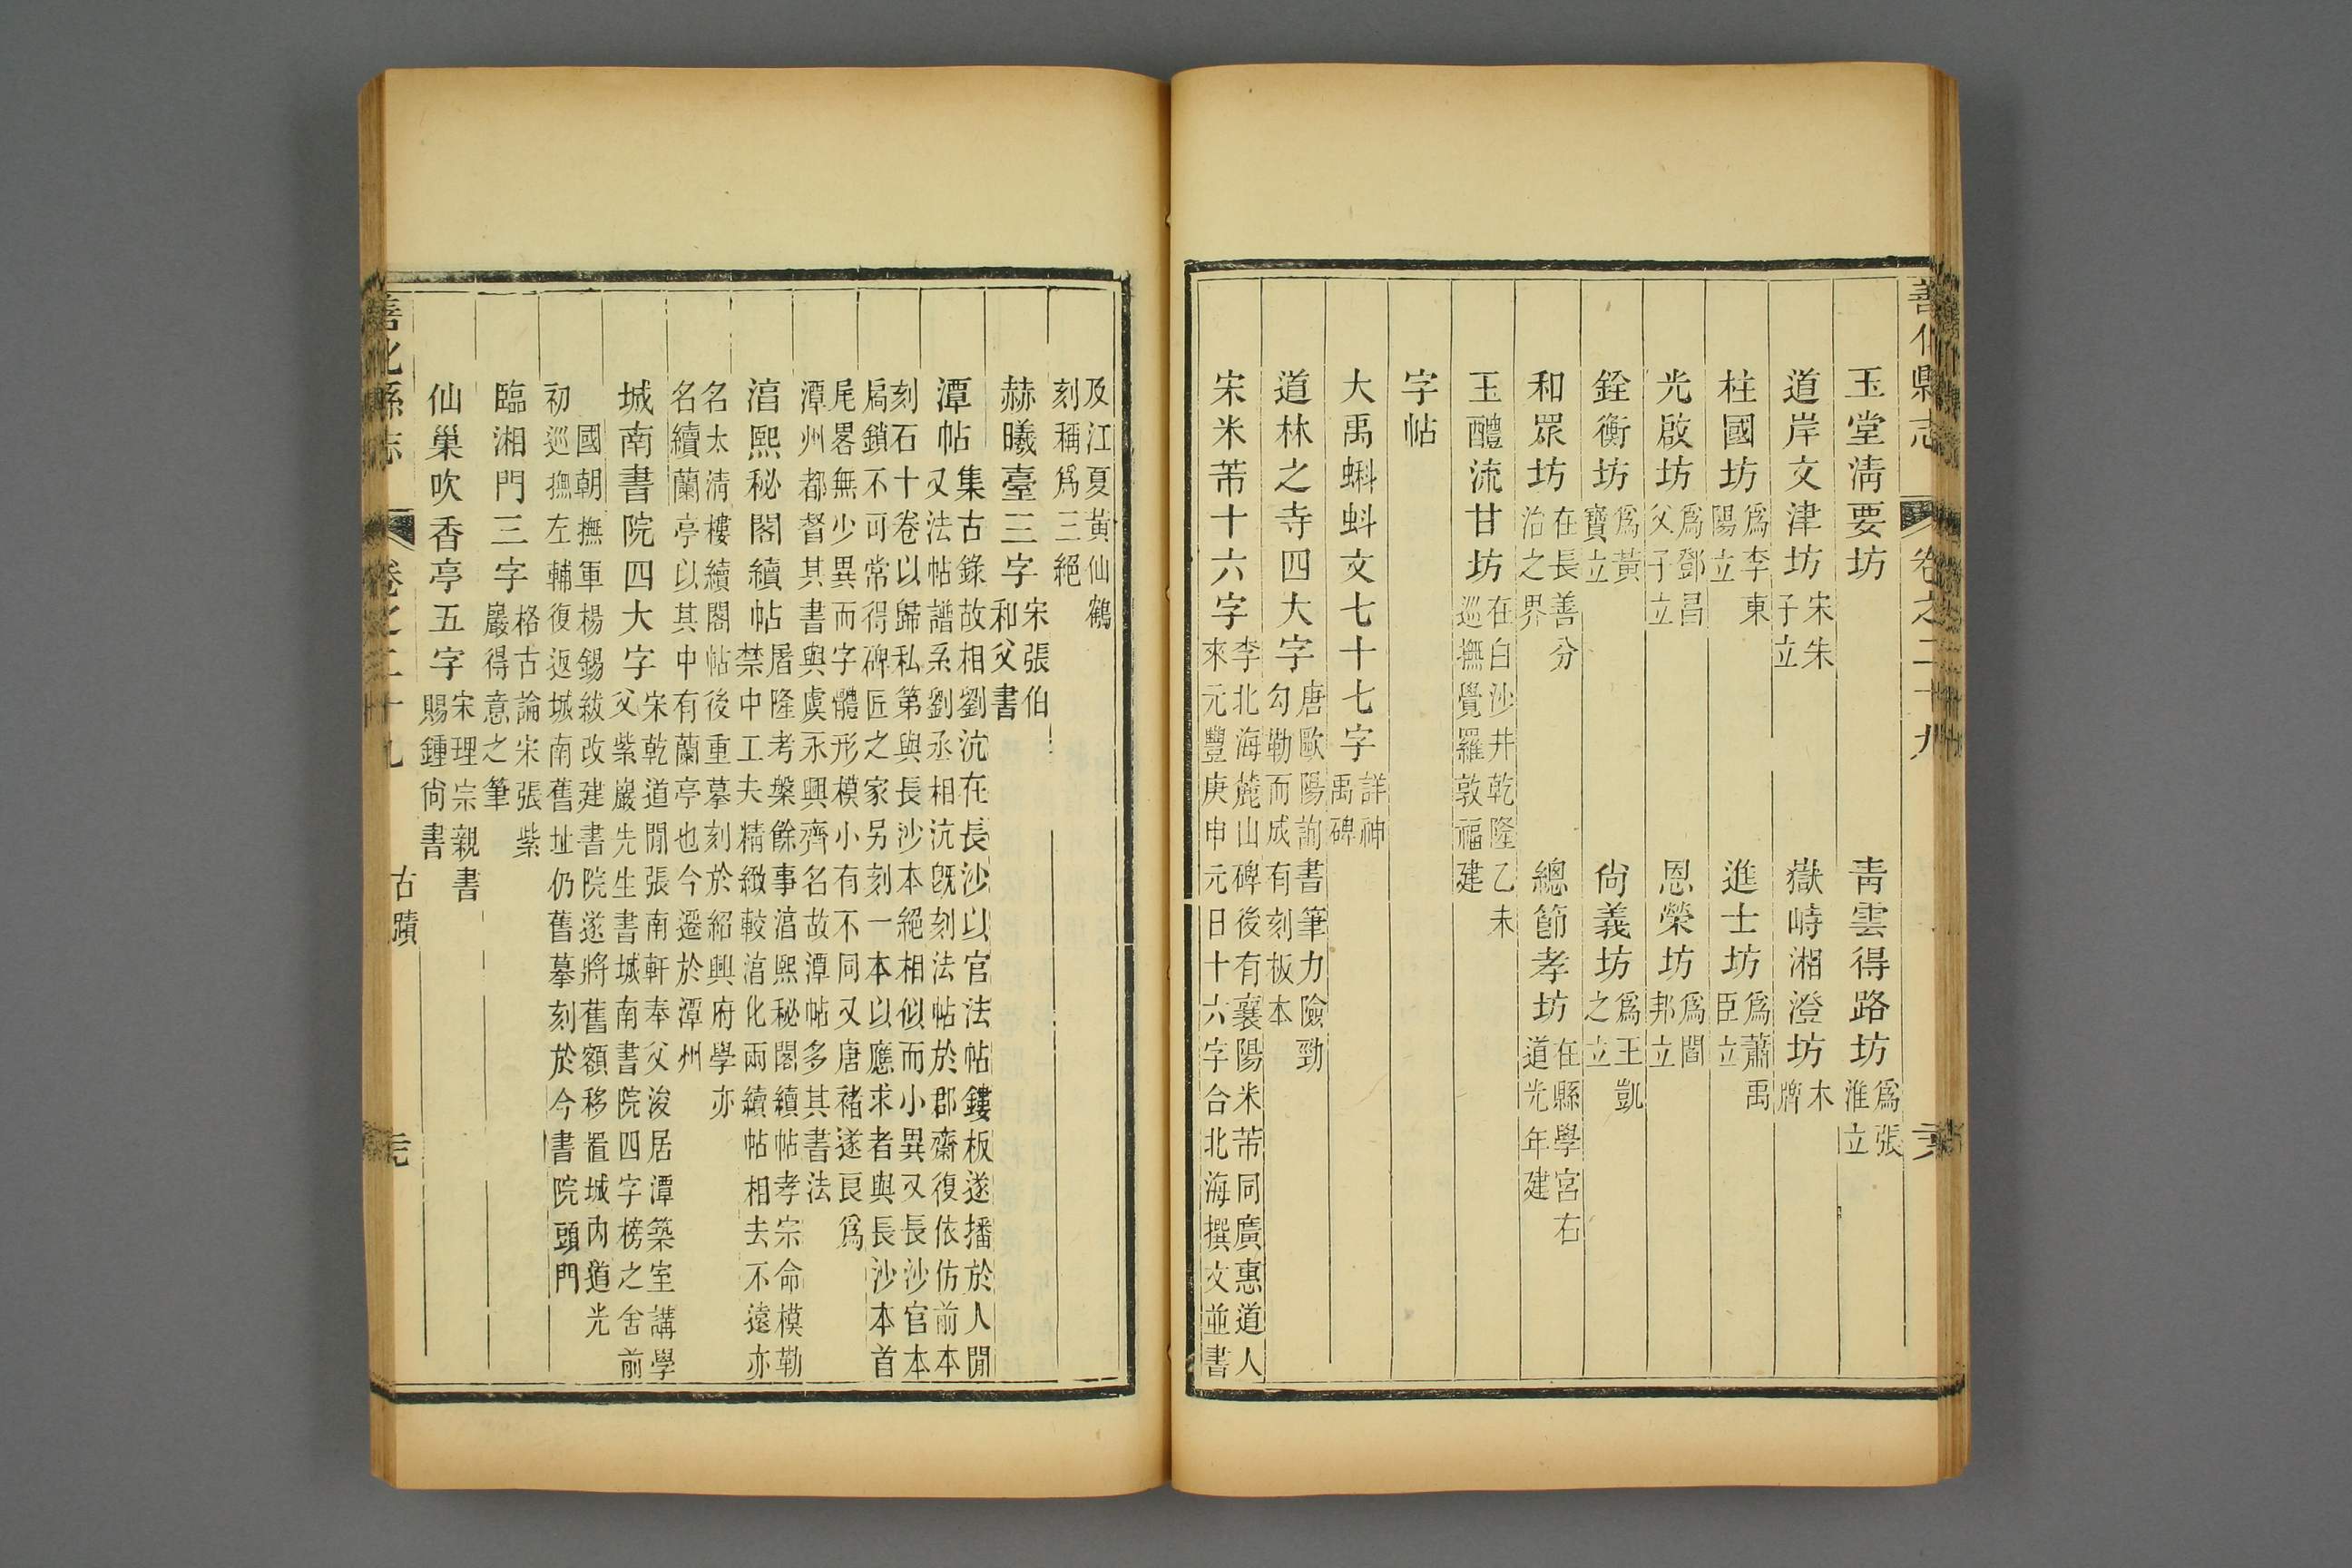 善化縣志 卷之二十九
玉堂淸要坊 靑雲得路坊 爲張淮立
道岸文津坊 宋朱子立 嶽峙湘澄坊 木牌
柱國坊 爲李東陽立 進士坊 爲蕭禹臣立
光啟坊 爲鄧昌父子立 恩榮坊 爲閻邦立
銓衡坊 爲黃寶立 尙義坊 爲王凱之立
和眾坊 在長善分治之界 總節孝坊 在縣學宮右道光年建
玉醴流甘坊 在白沙井乾隆乙未巡撫覺羅敦福建
字帖
大禹蝌蚪文七十七字 詳神禹碑
道林之寺四大字 唐歐陽詢書筆力險勁勾勒而成有刻板本
宋米芾十六字 李北海麓山碑後有襄陽米芾同廣惠道人來元豐庚申元日十六字合北海撰文並書
及江夏黃仙鶴刻稱爲三絕
赫曦臺三字 宋張伯和父書
潭帖 集古錄故相劉沆在長沙以官法帖鏤板遂播於人閒又法帖譜系劉丞相沆旣刻法帖於郡齋復依仿前本
刻石十卷以歸私第與長沙本絕相似而小異又長沙官本扃鎖不可常得碑匠之家另刻一本以應求者與長沙本首
尾畧無少異而字體形模小有不同又唐褚遂良爲潭州都督其書與虞永興齊名故潭帖多其書法
湻熙秘閣續帖 屠隆考槃餘事湻熙秘閣續帖孝宗命模勒禁中工夫精緻較湻化兩續帖相去不遠亦
名太清樓續閣帖後重摹刻於紹興府學亦名續蘭亭以其中有蘭亭也今遷於潭州
城南書院四大字 宋乾道閒張南軒奉父浚居潭築室講學父紫巖先生書城南書院四字榜之舍前
國朝撫軍楊錫紱改建書院遂將舊額移置城內道光初巡撫左輔復返城南舊址仍舊摹刻於今書院頭門
臨湘門三字 格古論宋張紫巖得意之筆
仙巢吹香亭五字 宋理宗親書賜鍾尙書
善化縣志 卷之二十九 古蹟